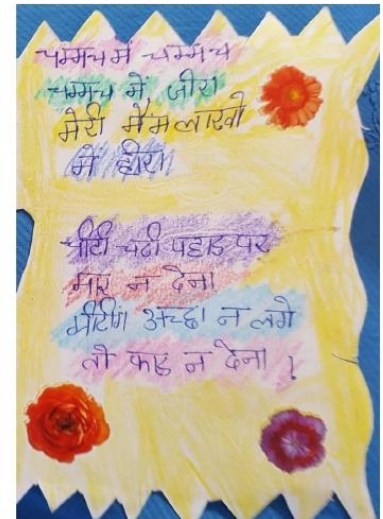 चम्मच में चम्मच
चम्मच में जीरा
मेरी मैम लाखो
में हीरा
चीटी चढी पहाड पर
मार न देना
ग्रीटींग अच्छा न लगे
तो फाड न देना ।